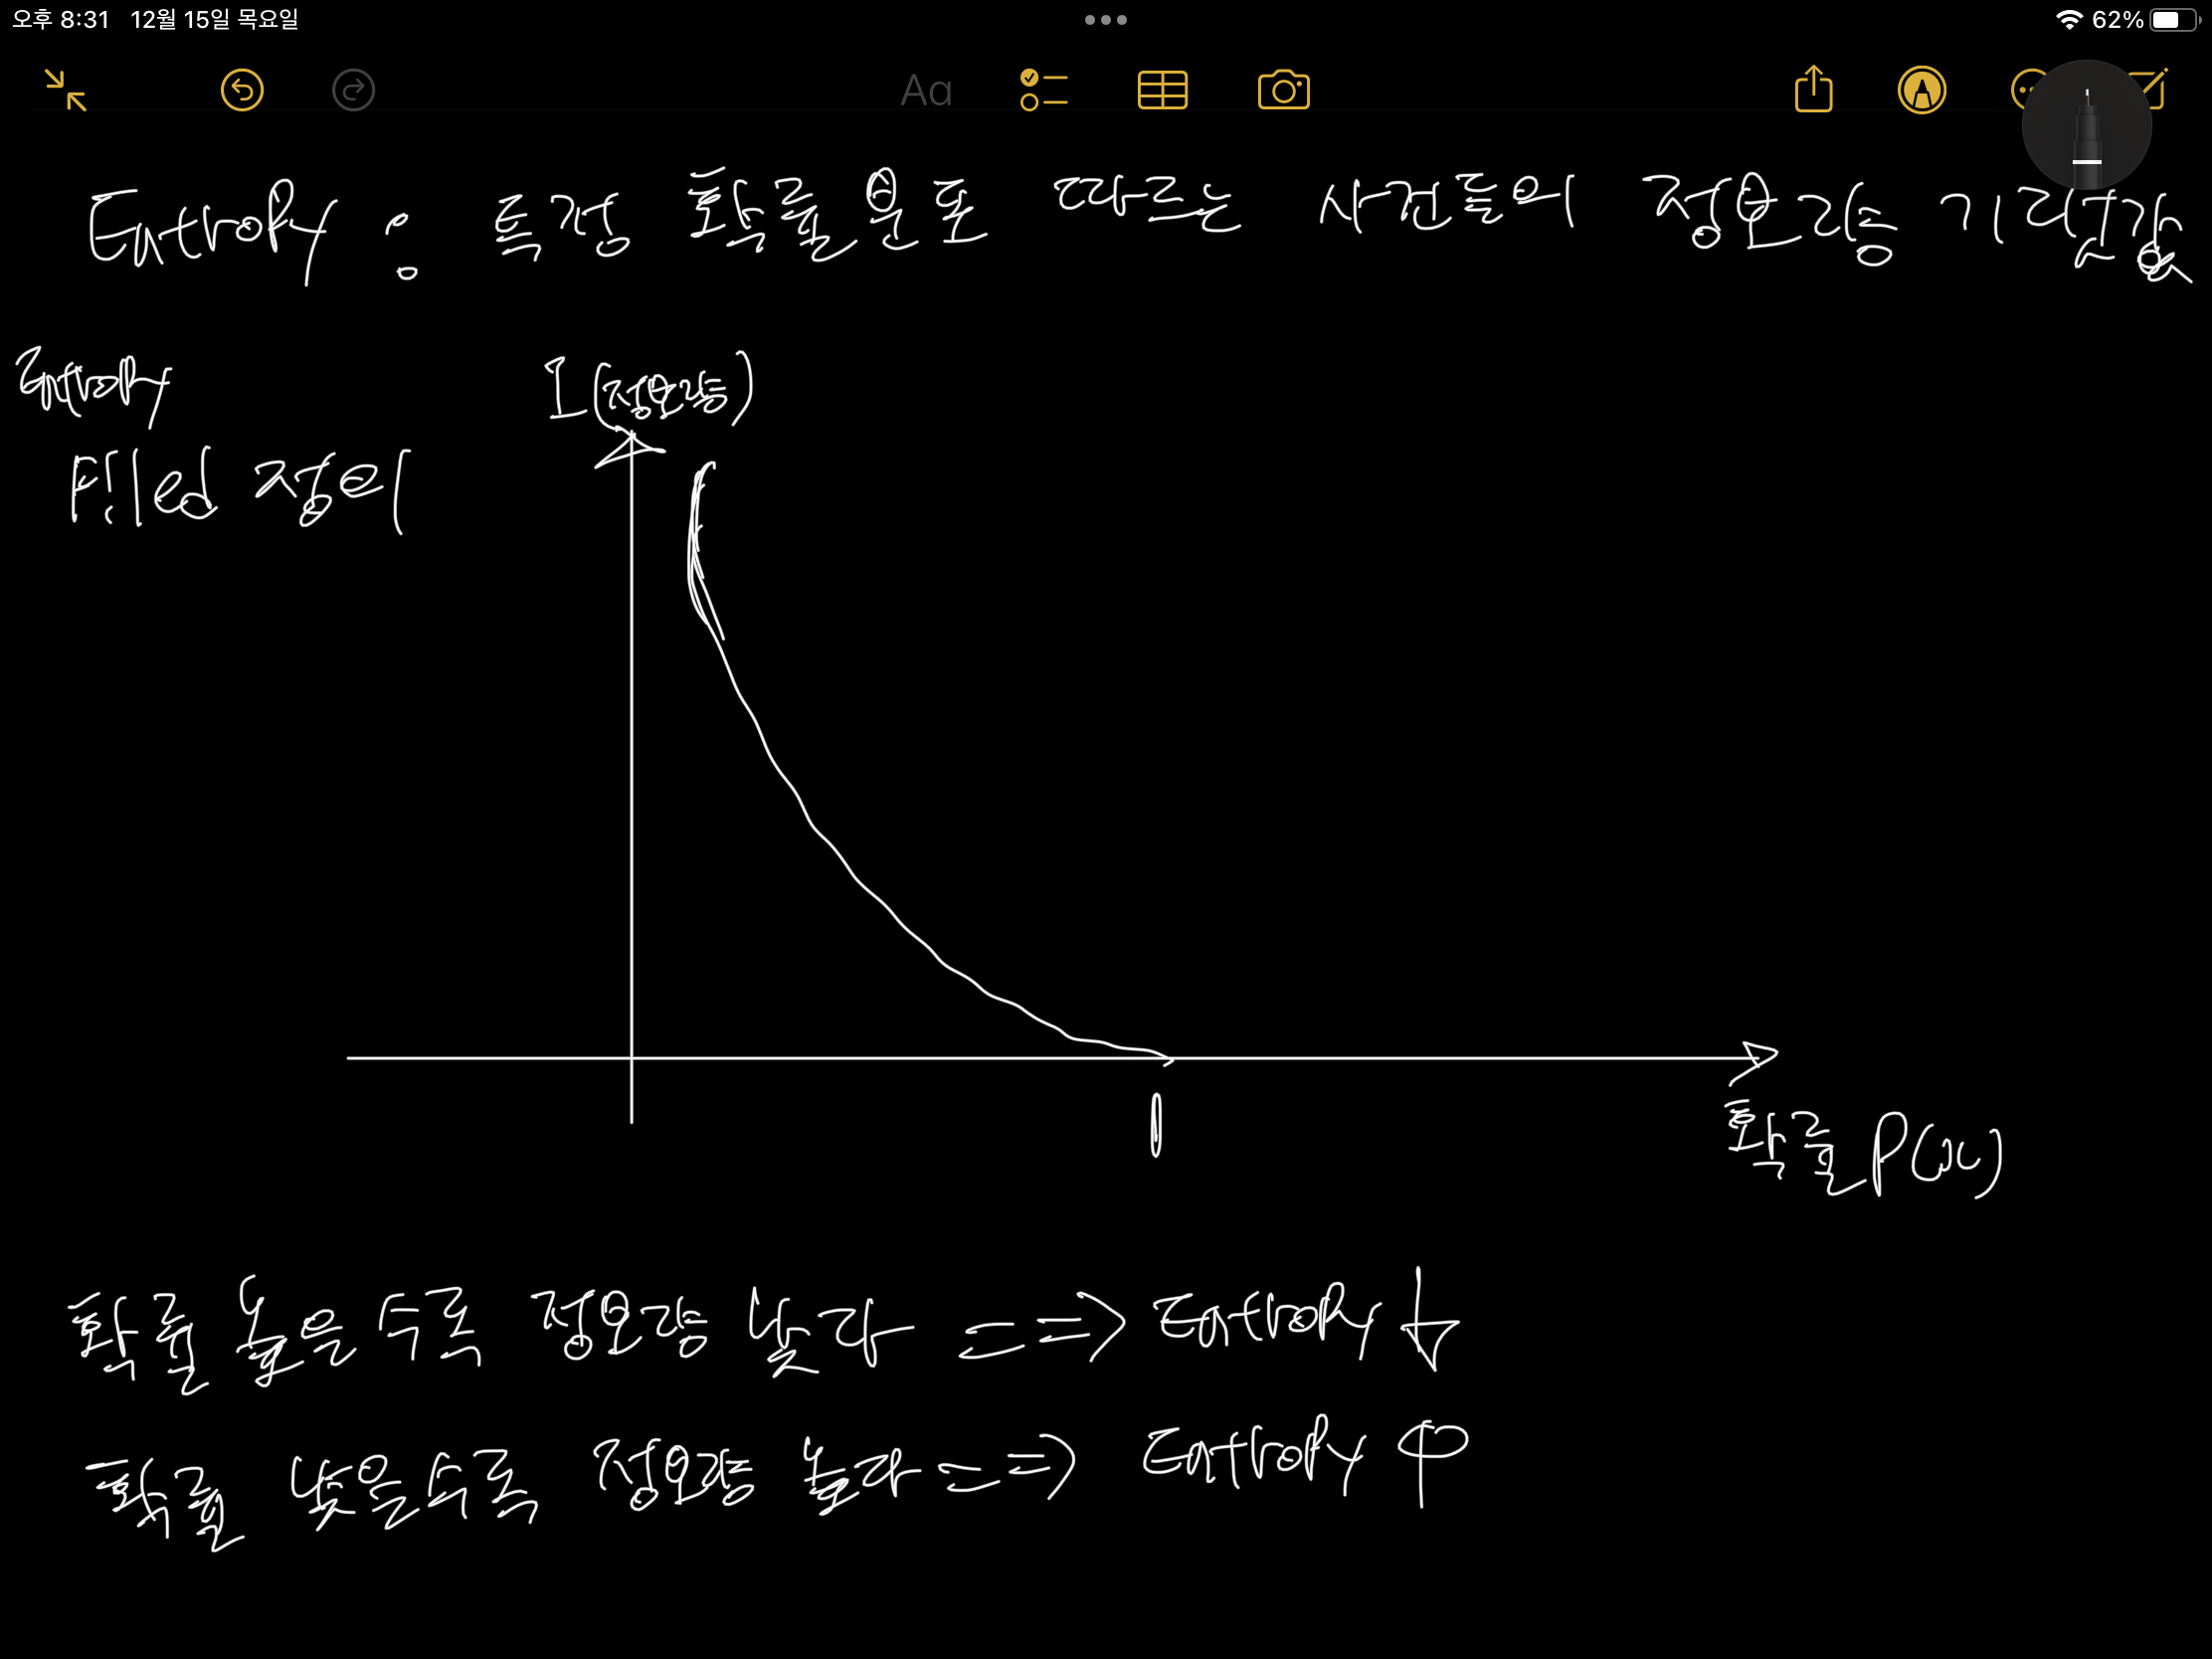 오후 8:31 12월 15일 목요일
62%
Aa
Entropy : 특정 확률분포 따르는 사건들의 정보량 기댓값
Entropy
I (정보량)
Filed 정의
1
확률 P(x)
확률 높을수록 정보량 낮다 ==> Entropy ↓
확률 낮을수록 정보량 높다 ==> Entropy ↑